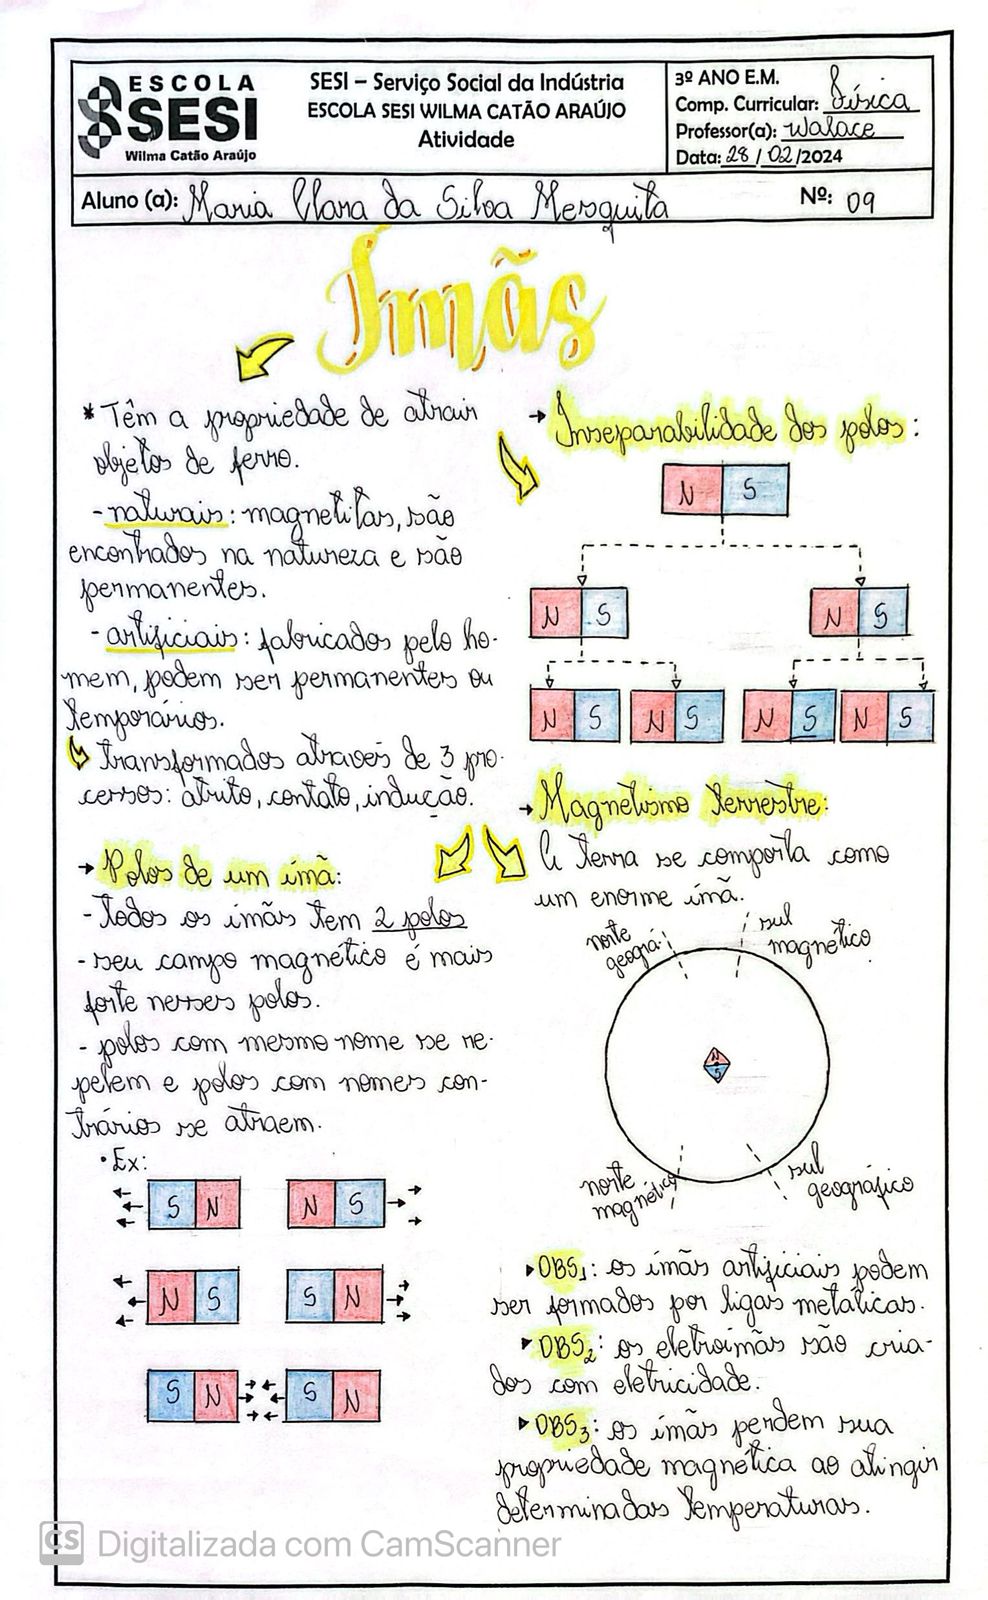 ESCOLA
SESI
Wilma Catão Araújo
SESI – Serviço Social da Indústria
ESCOLA SESI WILMA CATÃO ARAÚJO
Atividade
3º ANO E.M.
Comp. Curricular: Física
Professor(a): Walace
Data: 28/02/2024
Aluno (a): Maria Clara da Silva Mesquita
Nº: 09
Ímãs
* Têm a propriedade de atrair
objetos de ferro.
- naturais: magnetitas, são
encontrados na natureza e são
permanentes.
- artificiais: fabricados pelo ho-
mem, podem ser permanentes ou
temporários.
transformados através de 3 pro-
cessos: atrito, contato, indução.
→ Polos de um ímã:
- Todos os ímãs tem 2 polos
- seu campo magnético é mais
forte nesses polos.
- polos com mesmo nome se re-
pelem e polos com nomes con-
trários se atraem.
• Ex:
S N N S
N S S N
S N S N
→ Inseparabilidade dos polos:
N S
N S N S
N S N S N S N S
→ Magnetismo terrestre:
A terra se comporta como
um enorme ímã.
norte
geográ.
sul
magnético
N
S
norte
magnético
sul
geográfico
▸ OBS1: os ímãs artificiais podem
ser formados por ligas metálicas.
▸ OBS2: os eletroímãs são cria-
dos com eletricidade.
▸ OBS3: os ímãs perdem sua
propriedade magnética ao atingir
determinadas temperaturas.
CS Digitalizada com CamScanner